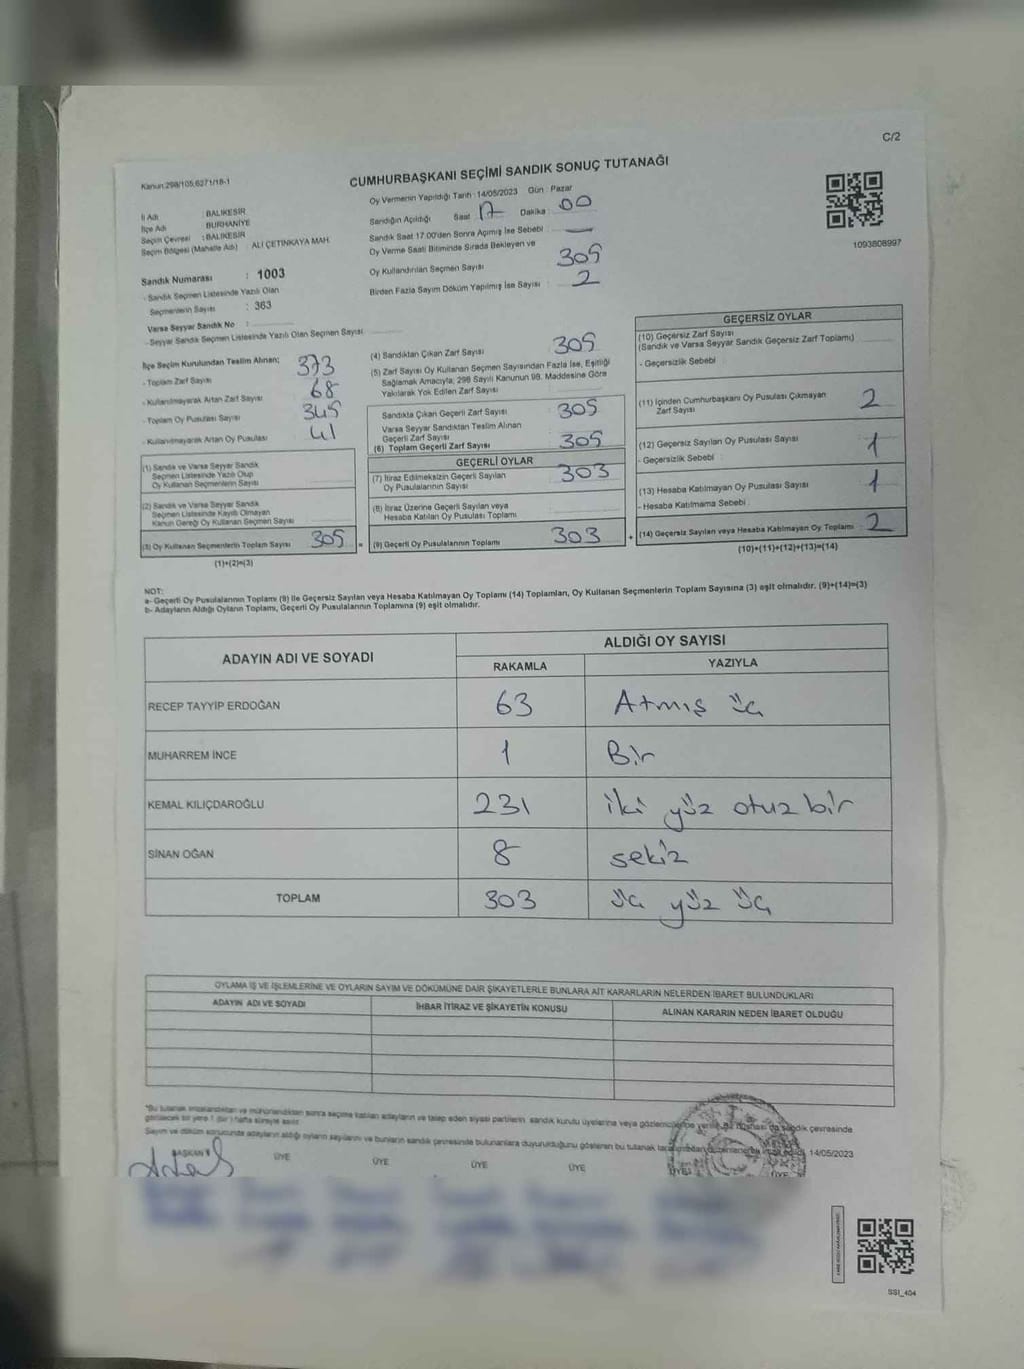 C/2
Kanun:298/105;6271/18-1
CUMHURBAŞKANI SEÇİMİ SANDIK SONUÇ TUTANAĞI
Oy Vermenin Yapıldığı Tarih :14/05/2023 Gün : Pazar
Sandığın Açıldığı Saat : 17 Dakika : 00
Sandık Saat 17.00'den Sonra Açılmış İse Sebebi : —
Oy Verme Saati Bitiminde Sırada Bekleyen ve
Oy Kullandırılan Seçmen Sayısı 305
Birden Fazla Sayım Döküm Yapılmış İse Sayısı : 2
1093808997
İl Adı : BALIKESİR
İlçe Adı : BURHANİYE
Seçim Çevresi : BALIKESİR
Seçim Bölgesi (Mahalle Adı) : ALİ ÇETİNKAYA MAH.
Sandık Numarası : 1003
- Sandık Seçmen Listesinde Yazılı Olan
Seçmenlerin Sayısı : 363
Varsa Seyyar Sandık No :
- Seyyar Sandık Seçmen Listesinde Yazılı Olan Seçmen Sayısı
İlçe Seçim Kurulundan Teslim Alınan;
- Toplam Zarf Sayısı 373
- Kullanılmayarak Artan Zarf Sayısı 68
- Toplam Oy Pusulası Sayısı 345
- Kullanılmayarak Artan Oy Pusulası 41
(1) Sandık ve Varsa Seyyar Sandık
Seçmen Listesinde Yazılı Olup
Oy Kullanan Seçmenlerin Sayısı
(2) Sandık ve Varsa Seyyar Sandık
Seçmen Listesinde Kayıtlı Olmayan
Kanun Gereği Oy Kullanan Seçmen Sayısı
(3) Oy Kullanan Seçmenlerin Toplam Sayısı 305 =
(1)+(2)=(3)
(4) Sandıktan Çıkan Zarf Sayısı 305
(5) Zarf Sayısı Oy Kullanan Seçmen Sayısından Fazla İse, Eşitliği
Sağlamak Amacıyla; 298 Sayılı Kanunun 98. Maddesine Göre
Yakılarak Yok Edilen Zarf Sayısı
Sandıkta Çıkan Geçerli Zarf Sayısı 305
Varsa Seyyar Sandıktan Teslim Alınan
Geçerli Zarf Sayısı
(6) Toplam Geçerli Zarf Sayısı 305
GEÇERLİ OYLAR
(7) İtiraz Edilmeksizin Geçerli Sayılan
Oy Pusulalarının Sayısı 303
(8) İtiraz Üzerine Geçerli Sayılan veya
Hesaba Katılan Oy Pusulası Toplamı
(9) Geçerli Oy Pusulalarının Toplamı 303 +
GEÇERSİZ OYLAR
(10) Geçersiz Zarf Sayısı
(Sandık ve Varsa Seyyar Sandık Geçersiz Zarf Toplamı)
- Geçersizlik Sebebi :
(11) İçinden Cumhurbaşkanı Oy Pusulası Çıkmayan
Zarf Sayısı 2
(12) Geçersiz Sayılan Oy Pusulası Sayısı 1
- Geçersizlik Sebebi :
(13) Hesaba Katılmayan Oy Pusulası Sayısı 1
- Hesaba Katılmama Sebebi :
(14) Geçersiz Sayılan veya Hesaba Katılmayan Oy Toplamı 2
(10)+(11)+(12)+(13)=(14)
NOT:
a- Geçerli Oy Pusulalarının Toplamı (9) ile Geçersiz Sayılan veya Hesaba Katılmayan Oy Toplamı (14) Toplamları, Oy Kullanan Seçmenlerin Toplam Sayısına (3) eşit olmalıdır. (9)+(14)=(3)
b- Adayların Aldığı Oyların Toplamı, Geçerli Oy Pusulalarının Toplamına (9) eşit olmalıdır.
ADAYIN ADI VE SOYADI ALDIĞI OY SAYISI
RAKAMLA YAZIYLA
RECEP TAYYİP ERDOĞAN 63 Atmış üç
MUHARREM İNCE 1 Bir
KEMAL KILIÇDAROĞLU 231 iki yüz otuz bir
SİNAN OĞAN 8 sekiz
TOPLAM 303 üç yüz üç
OYLAMA İŞ VE İŞLEMLERİNE VE OYLARIN SAYIM VE DÖKÜMÜNE DAİR ŞİKAYETLERLE BUNLARA AİT KARARLARIN NELERDEN İBARET BULUNDUKLARI
ADAYIN ADI VE SOYADI İHBAR İTİRAZ VE ŞİKAYETİN KONUSU ALINAN KARARIN NEDEN İBARET OLDUĞU
*Bu tutanak imzalandıktan ve mühürlendikten sonra seçime katılan adayların ve talep eden siyasi partilerin sandık kurulu üyelerine veya gözlemcilerine
sandık çevresinde
görülecek bir yere 1 (bir) hafta süreyle asılır.
Sayım ve döküm sonucunda adayların aldığı oyların sayılarını ve bunların sandık çevresinde bulunanlara duyurulduğunu gösteren bu tutanak 14/05/2023
BAŞKAN ÜYE ÜYE ÜYE ÜYE ÜYE ÜYE
SSI_404